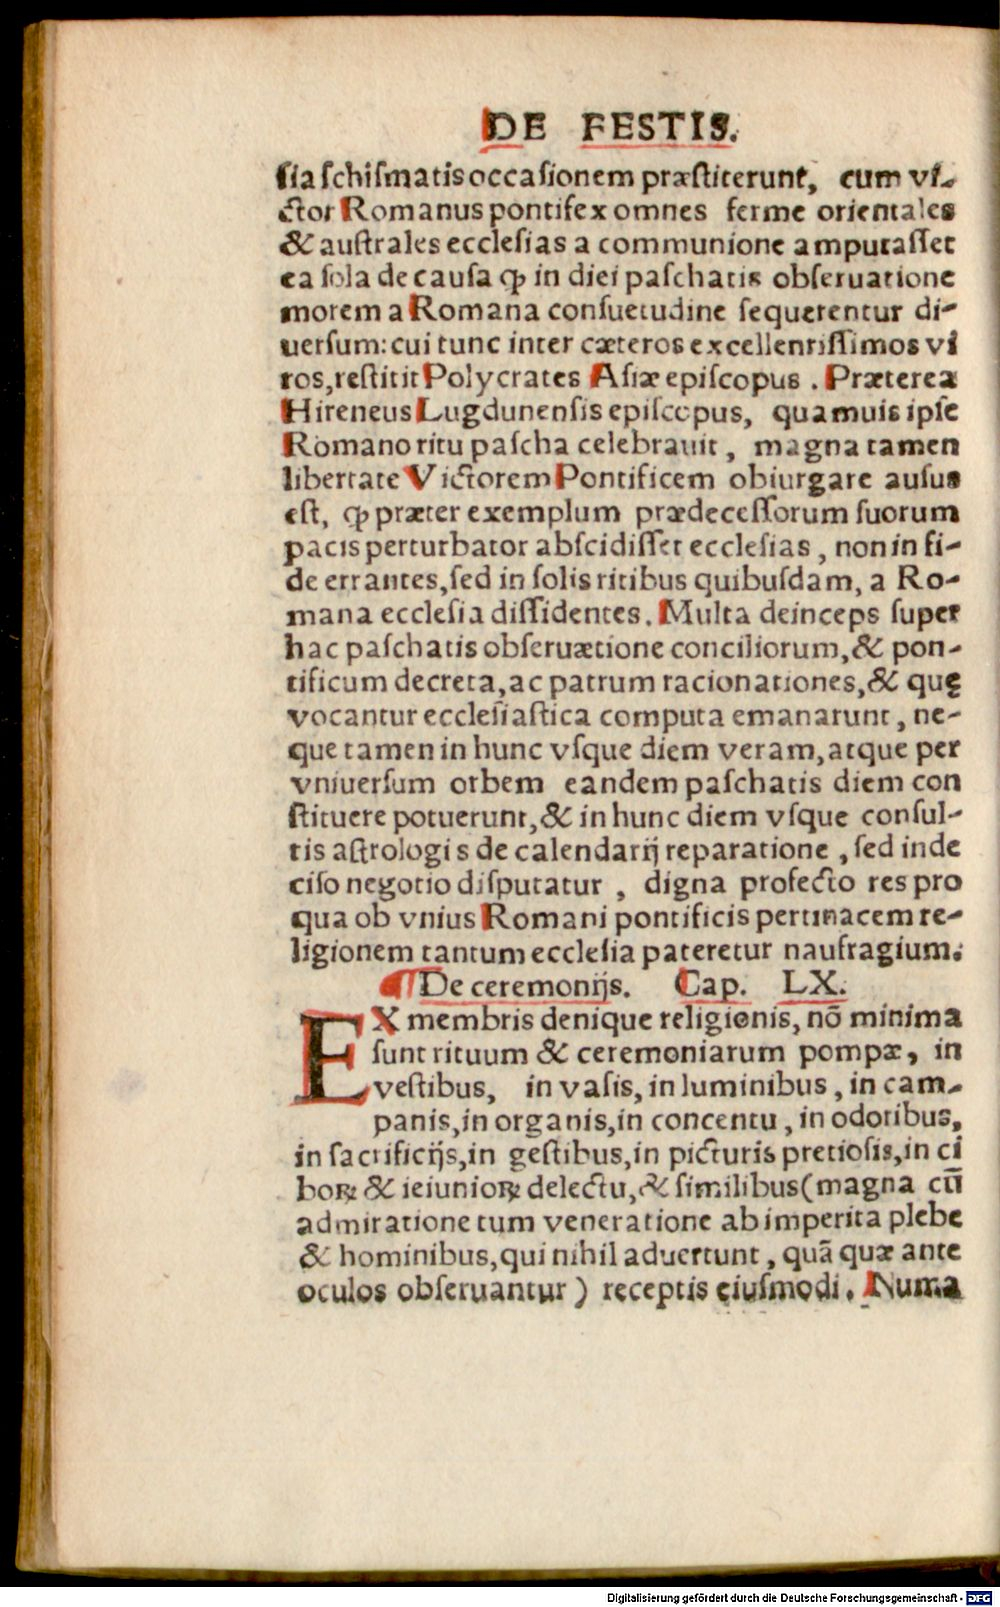 DE FESTIS.
ſia ſchiſmatis occaſionem præſtiterunt, cum vi-
ctor Romanus pontifex omnes ferme orientales
& auſtrales eccleſias a communione amputaſſet
ea ſola de causa ꝙ in diei paſchatis obſeruatione
morem a Romana conſuetudine ſequerentur di-
uerſum: cui tunc inter cæteros excellentiſſimos vi
ros, reſtitit Polycrates Aſiæ epiſcopus. Præterea
Hireneus Lugdunenſis epiſcopus, quamuis ipſe
Romano ritu paſcha celebrauit, magna tamen
libertate Victorem Pontificem obiurgare auſus
eſt, ꝙ præter exemplum prædeceſſorum ſuorum
pacis perturbator abſcidiſſet eccleſias, non in fi-
de errantes, ſed in ſolis ritibus quibuſdam, a Ro-
mana eccleſia diſſidentes. Multa deinceps ſuper
hac paſchatis obſeruætione conciliorum, & pon-
tificum decreta, ac patrum racionationes, & quę
vocantur eccleſiaſtica computa emanarunt, ne-
que tamen in hunc vſque diem veram, atque per
vniuerſum orbem eandem paſchatis diem con
ſtituere potuerunt, & in hunc diem vſque conſul-
tis aſtrologis de calendarij reparatione, ſed inde
ciſo negotio diſputatur, digna profecto res pro
qua ob vnius Romani pontificis pertinacem re-
ligionem tantum eccleſia pateretur naufragium.
¶ De ceremonijs. Cap. LX.
EX membris denique religionis, nō minima
ſunt rituum & ceremoniarum pompæ, in
veſtibus, in vaſis, in luminibus, in cam-
panis, in organis, in concentu, in odoribus,
in ſacrificijs, in geſtibus, in picturis pretioſis, in ci
boꝝ & ieiunioꝝ delectu, & ſimilibus (magna cū
admiratione tum veneratione ab imperita plebe
& hominibus, qui nihil aduertunt, quā quæ ante
oculos obſeruantur) receptis eiuſmodi. Numa
Digitalisierung gefördert durch die Deutsche Forschungsgemeinschaft - DFG